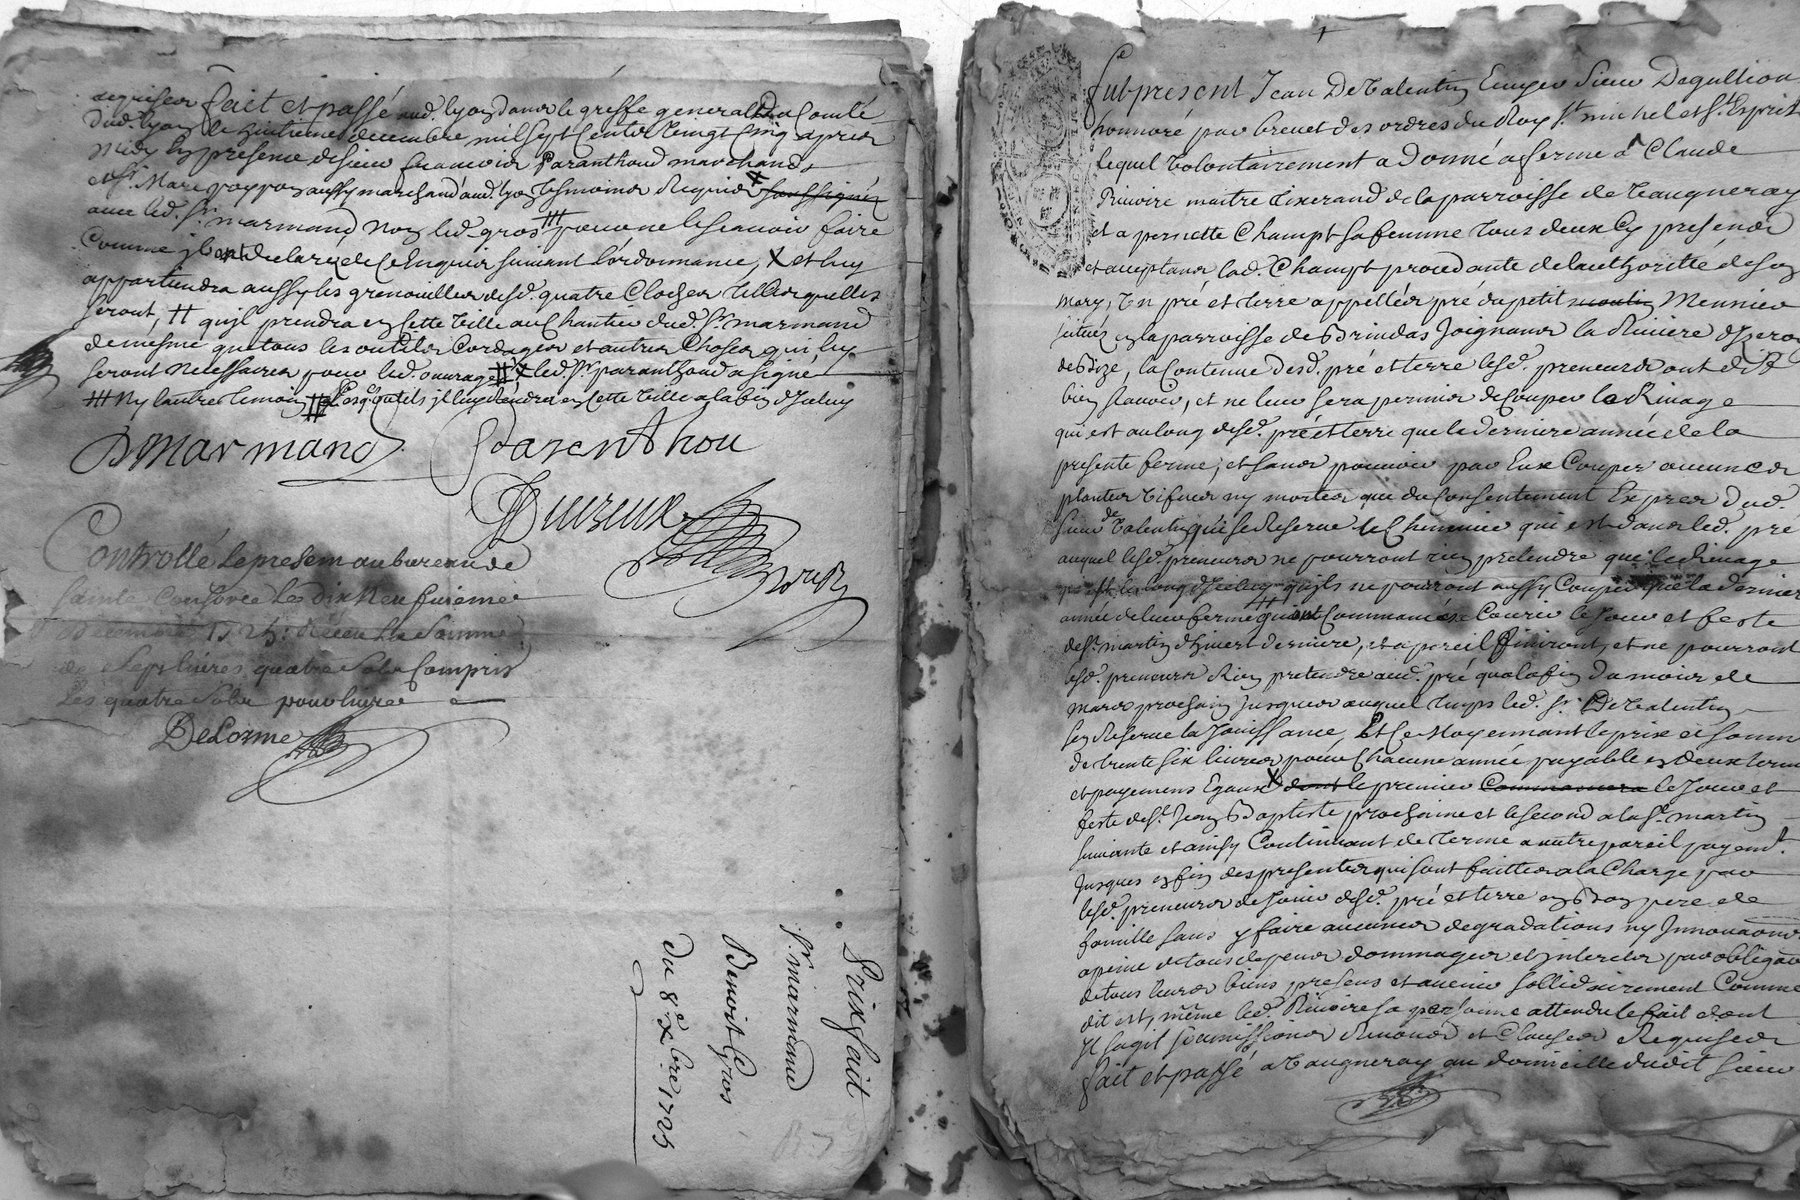 requises fait et passé aud. lyon dans le greffe general du Comté
dud. lyon le huitieme decembre mil sept Cents vingt Cinq apres
midy en presence de sieur francois Paranthoud marchands
et Sr. Marc aussy marchand aud. lyon tesmoins Requis soussignés
avec led. Sr. marmand, Non led. gros pour ne le scavoir faire
Comme il ont declaré de Ce Enquis suivant l'ordonnance, X et luy
appartiendra aussy les grenouilles desd. quatre Cloches telles quelles
seront, # qu'il prendra en Cette Ville au Chantier dud. Sr. marmand
de mesme que tous les outils Cordages et autres Choses qui luy
seront necessaires pour led. ouvrage # X led. Sr. paranthoud a signé
ny lautre temoin Lesq. outils il luy rendra en Cette Ville a la fin
Dmarmand Parenthou
Dureux
Controllé le present au bureau de
Sainte Consorce Le Dix Neufuieme
Decembre 1725. Receu La Somme
de Sept livres quatre Sols Compris
Les quatre Sols pour livre
DeLorme
Prixfait
Sr. marmand
Benoit Gros
Du 8e. Xbre 1725
fut present Jean De Valentin Ecuyer Sieur De
honnoré par brevet des ordres du Roy St. michel et St. Esprit
lequel Volontairement a Donné a ferme a Claude
Riviere maitre tixerand de la parroisse de Vaugneray
et a pernette Champt sa femme tous deux Cy presens
et acceptans lad. Champt procedante de lauthoritté de son
mary, Un pré et terre appellés pré du petit Meunier
situés en la parroisse de Brindas Joignans la Riviere d'Izeron
de Bize, la Contenue desd. pré et terre lesd. preneurs ont dit
bien scavoir, et ne leur sera permis de Couper le Rivage
qui est au long desd. pré et terre que la derniere année de la
presente ferme, et sans pouvoir par Eux Couper aucuns
plantes vifues ny mortes que du Consentement Expres dud.
Sieur de Valentin qui se Reserve le Chemin qui est dans led. pré
auquel lesd. preneurs ne pourront rien pretendre que le Rivage
qu'ils ne pourront aussy Couper que la derniere
année de leur ferme qui ont Commancé a Courir le Jour et feste
de St. martin d'hivert derniere, et a pareil finiront, et ne pourront
lesd. preneurs Rien pretendre aud. pré qu'a la fin du mois de
mars prochain jusques auquel temps led. Sr. De Valentin
sen Reserve la Jouissance, Et Ce Moyennant le prix et somme
de trente six livres pour Chacune année payable en deux termes
et payemens Egaux X dont le premier Commancera le Jour et
feste de St. Jean Baptiste prochaine et le second a la St. martin
suivante et ainsy Continuant de terme a autre pareil payemt.
Jusques en fin des presentes qui sont faittes a la Charge par
lesd. preneurs de Jouir desd. pré et terre en Bon pere de
famille sans y faire aucunes degradations ny Innovaons
a peine de tous depens dommages et interets par obligaon
de tous leurs biens presens et avenir sollidairement Comme
dit est, même led. Riviere sa personne attendu le fait dont
Il s'agit soumissions Renons et Clauses Requises
fait et passé a Vaugneray au domicille dudit Sieur